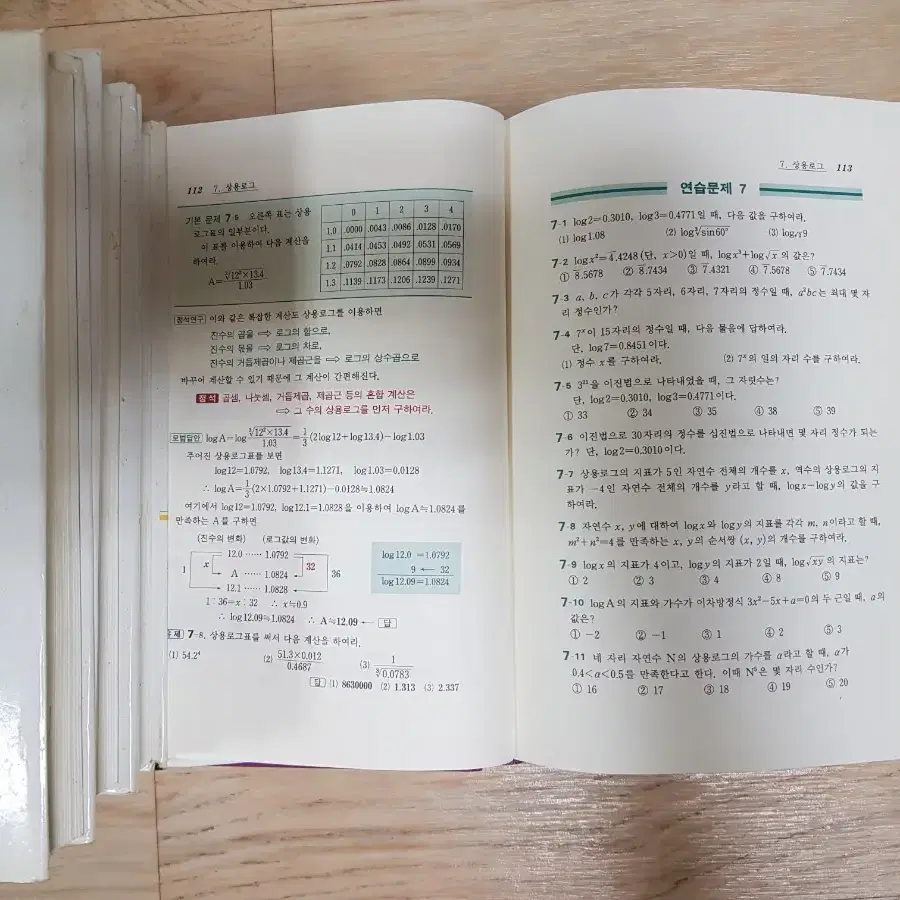 112 7. 상용로그
기본 문제 7-6 오른쪽 표는 상용
로그표의 일부분이다.
이 표를 이용하여 다음 계산을
하여라.
A=∛(12²×13.4)/1.03
0 1 2 3 4
1.0 .0000 .0043 .0086 .0128 .0170
1.1 .0414 .0453 .0492 .0531 .0569
1.2 .0792 .0828 .0864 .0899 .0934
1.3 .1139 .1173 .1206 .1239 .1271
정석연구 이와 같은 복잡한 계산도 상용로그를 이용하면
진수의 곱을 ⇨ 로그의 합으로,
진수의 몫을 ⇨ 로그의 차로,
진수의 거듭제곱이나 제곱근을 ⇨ 로그의 상수곱으로
바꾸어 계산할 수 있기 때문에 그 계산이 간편해진다.
정석 곱셈, 나눗셈, 거듭제곱, 제곱근 등의 혼합 계산은
⇨ 그 수의 상용로그를 먼저 구하여라.
모범답안 logA=log ∛(12²×13.4)/1.03=1/3(2log12+log13.4)−log1.03
주어진 상용로그표를 보면
log12=1.0792, log13.4=1.1271, log1.03=0.0128
∴ logA=1/3(2×1.0792+1.1271)−0.0128≒1.0824
여기에서 log12=1.0792, log12.1=1.0828을 이용하여 logA≒1.0824를
만족하는 A를 구하면
(진수의 변화) (로그값의 변화)
12.0 ······ 1.0792
1 x A ······ 1.0824 32 36
12.1 ······ 1.0828
1:36=x:32 ∴ x≒0.9
∴ log12.09≒1.0824 ∴ A≒12.09 ← 답
log12.0 =1.0792
9 ← 32
log12.09=1.0824
제 7-8. 상용로그표를 써서 다음 계산을 하여라.
(1) 54.2⁴ (2) 51.3×0.012/0.4687 (3) 1/∛0.0783
답 (1) 8630000 (2) 1.313 (3) 2.337
7. 상용로그 113
연습문제 7
7-1 log2=0.3010, log3=0.4771일 때, 다음 값을 구하여라.
(1) log1.08 (2) log∛sin60° (3) log√₃9
7-2 logx²=4̄.4248(단, x>0)일 때, logx³+log√x의 값은?
① 8̄.5678 ② 8̄.7434 ③ 7̄.4321 ④ 7̄.5678 ⑤ 7̄.7434
7-3 a, b, c가 각각 5자리, 6자리, 7자리의 정수일 때, a²bc는 최대 몇 자
리 정수인가?
7-4 7ˣ이 15자리의 정수일 때, 다음 물음에 답하여라.
단, log7=0.8451이다.
(1) 정수 x를 구하여라. (2) 7ˣ의 일의 자리 수를 구하여라.
7-5 3²¹을 이진법으로 나타내었을 때, 그 자릿수는?
단, log2=0.3010, log3=0.4771이다.
① 33 ② 34 ③ 35 ④ 38 ⑤ 39
7-6 이진법으로 30자리의 정수를 십진법으로 나타내면 몇 자리 정수가 되는
가? 단, log2=0.3010이다.
7-7 상용로그의 지표가 5인 자연수 전체의 개수를 x, 역수의 상용로그의 지
표가 −4인 자연수 전체의 개수를 y라고 할 때, logx−logy의 값을 구
하여라.
7-8 자연수 x, y에 대하여 logx와 logy의 지표를 각각 m, n이라고 할 때,
m²+n²=4를 만족하는 x, y의 순서쌍 (x, y)의 개수를 구하여라.
7-9 logx의 지표가 4이고, logy의 지표가 2일 때, log√xy의 지표는?
① 2 ② 3 ③ 4 ④ 8 ⑤ 9
7-10 logA의 지표와 가수가 이차방정식 3x²−5x+a=0의 두 근일 때, a의
값은?
① −2 ② −1 ③ 1 ④ 2 ⑤ 3
7-11 네 자리 자연수 N의 상용로그의 가수를 α라고 할 때, α가
0.4<α<0.5를 만족한다고 한다. 이때 N⁵은 몇 자리 수인가?
① 16 ② 17 ③ 18 ④ 19 ⑤ 20